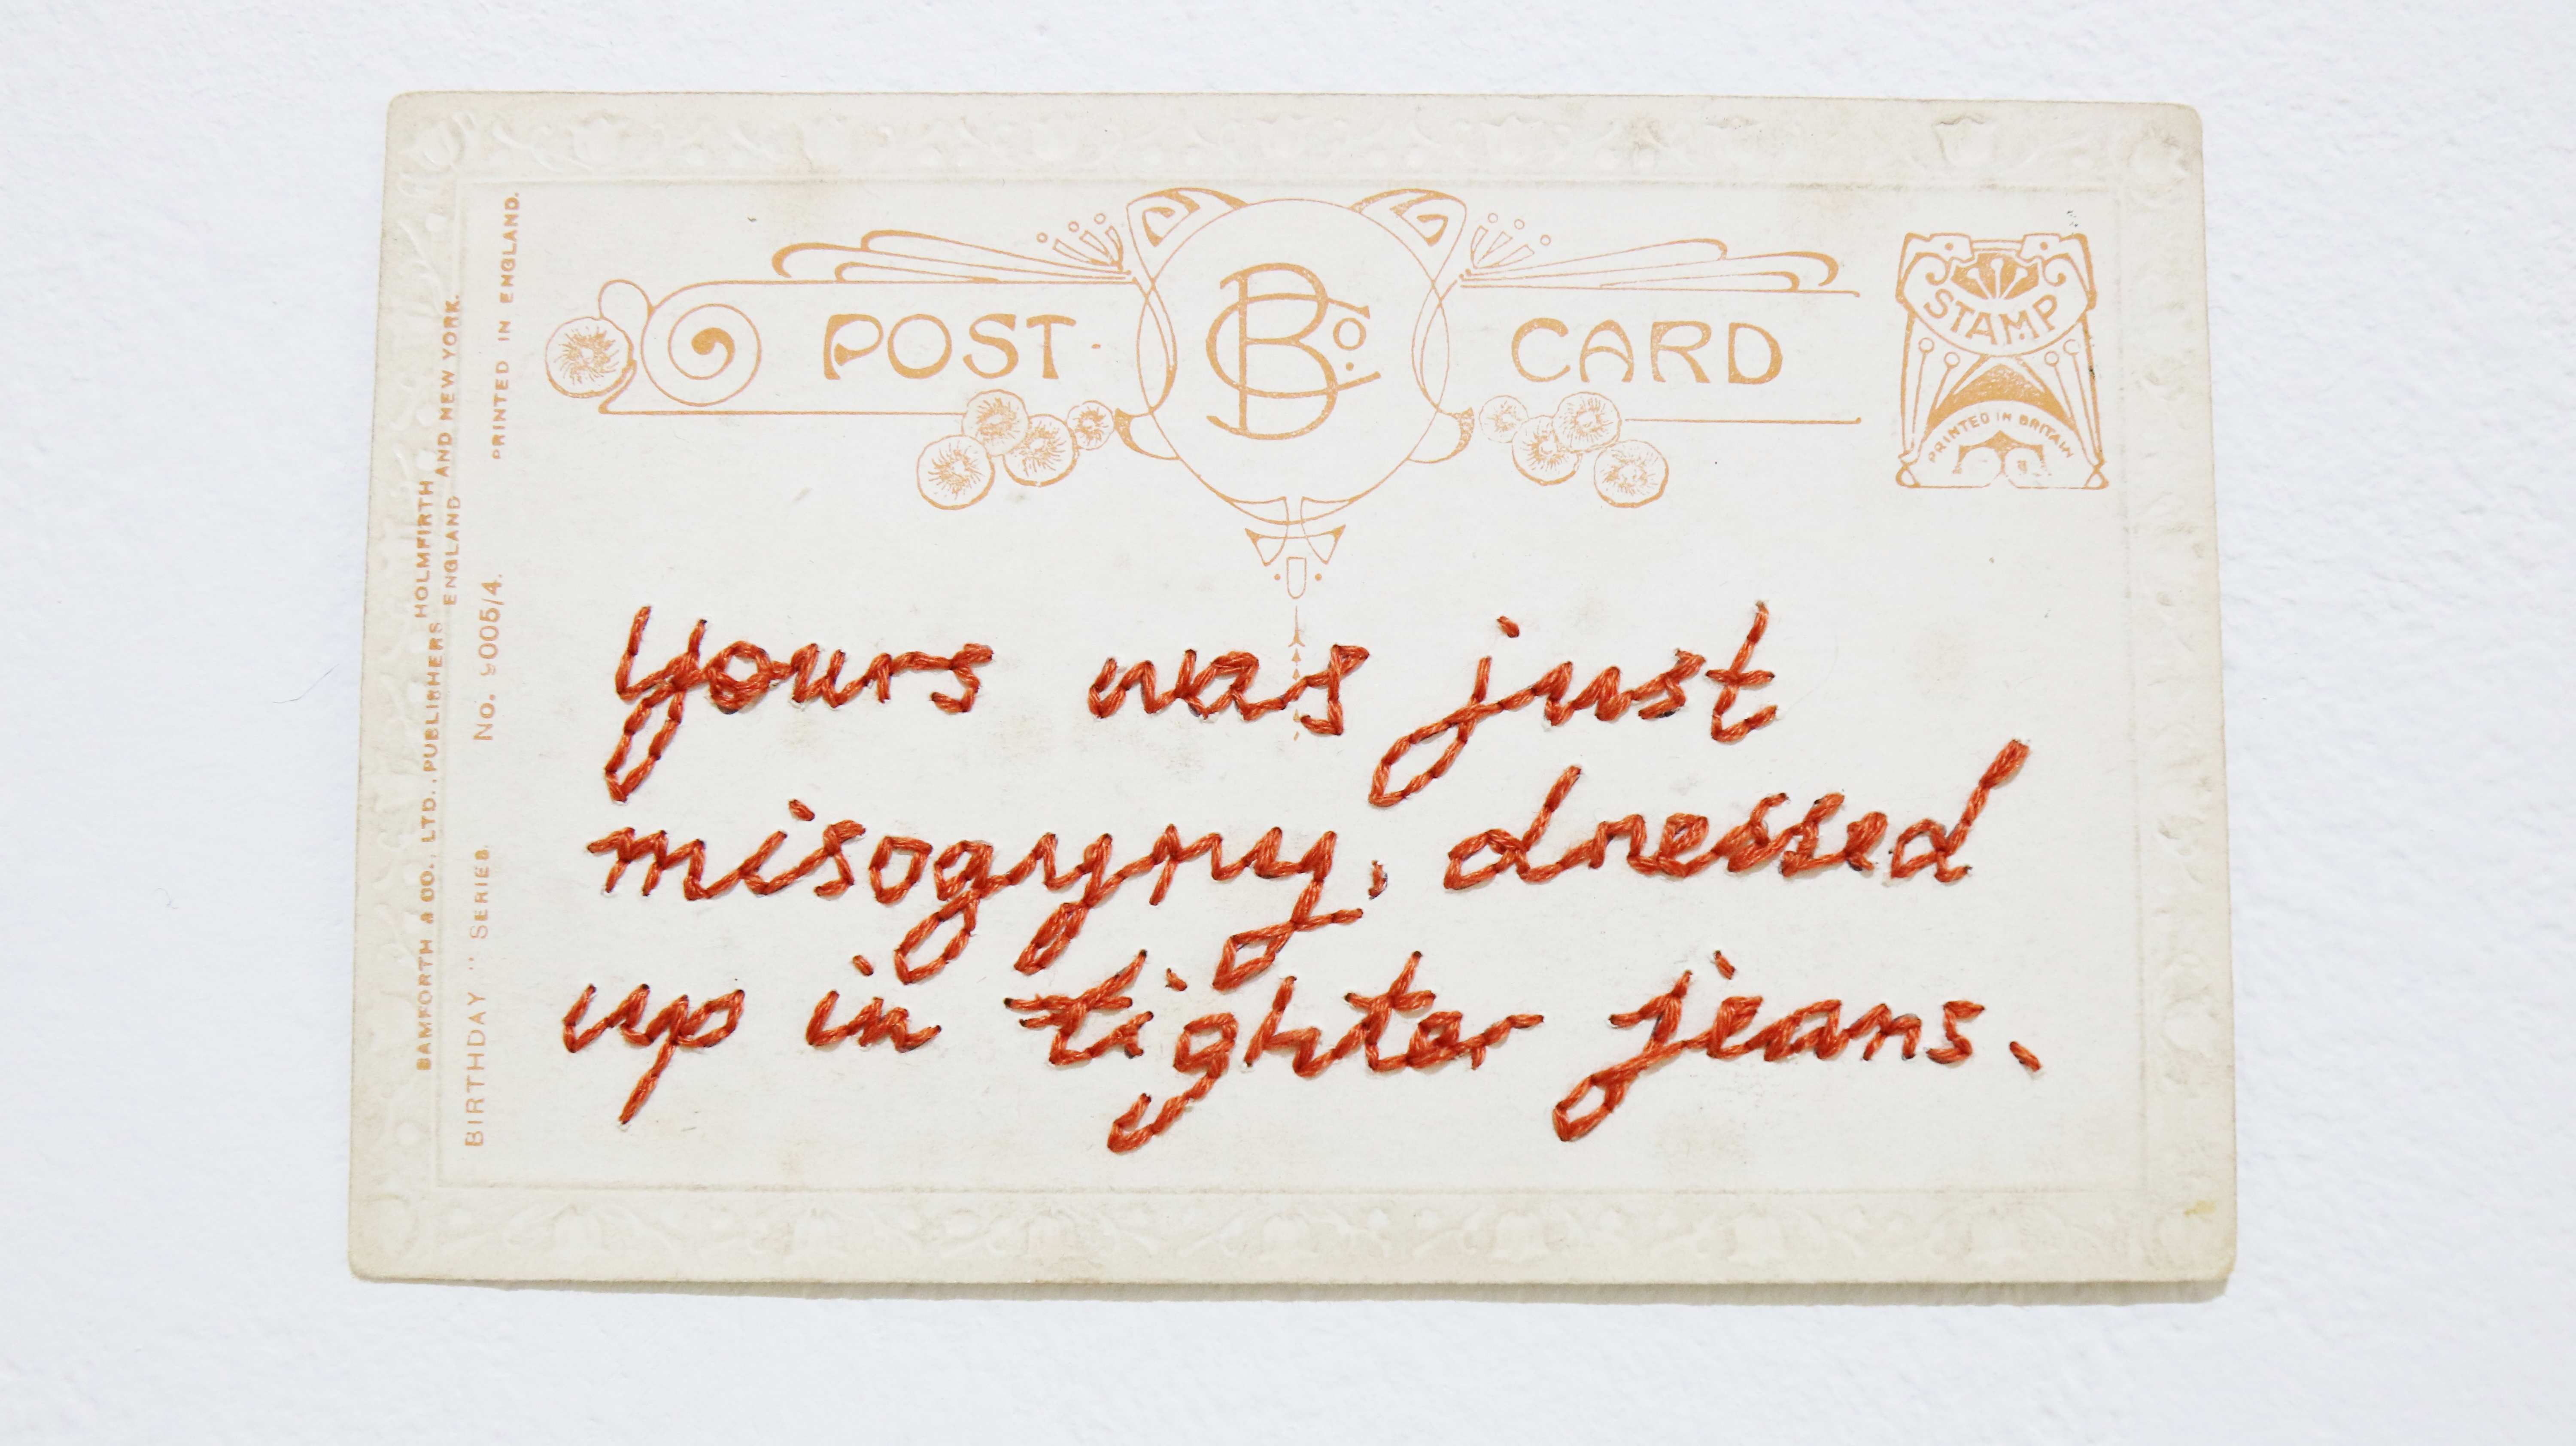 POST CARD
B Co.
STAMP
PRINTED IN BRITAIN
yours was just
misogyny, dressed
up in tighter jeans.
BAMFORTH & CO., LTD., PUBLISHERS HOLMFIRTH ENGLAND AND NEW YORK.
BIRTHDAY " SERIES. No. 9005/4. PRINTED IN ENGLAND.